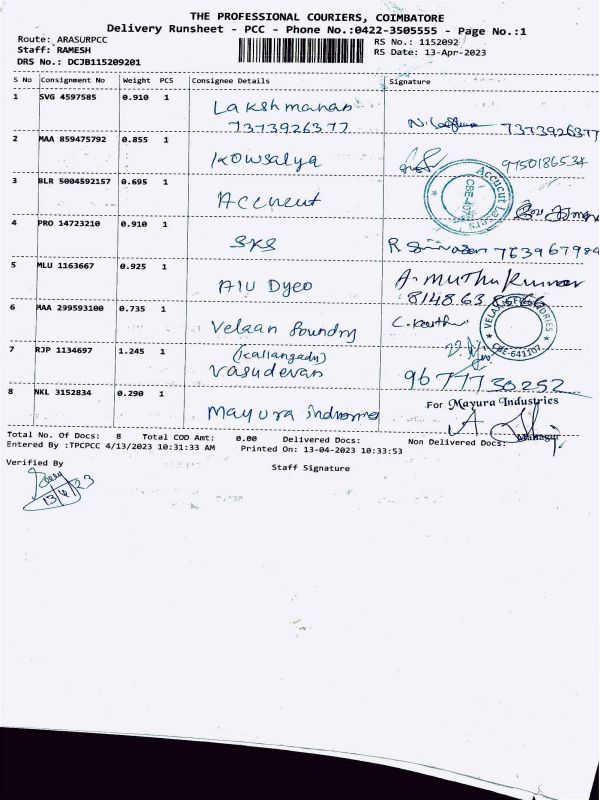 THE PROFESSIONAL COURIERS, COIMBATORE
Delivery Runsheet - PCC - Phone No.:0422-3505555 - Page No.:1
Route: ARASURPCC
RS No.: 1152092
Staff: RAMESH
RS Date: 13-Apr-2023
DRS No.: DCJB115209201
S No Consignment No Weight PCS Consignee Details Signature
1 SVG 4597585 0.910 1 Lakshmanan
7373926377 7373926377
2 MAA 859475792 0.855 1 Kowsalya 9750186534
3 BLR 5004592157 0.695 1 Accucut
4 PRO 14723210 0.910 1 SKS R Srinivasan
5 MLU 1163667 0.925 1 Alu Dyeo A. Muthukumar
6 MAA 299593100 0.735 1 Velaan Foundry
VELAAN
CBE-641107.
7 RJP 1134697 1.245 1 (Kallangadu)
Vasudevan 9677730252
8 NKL 3152834 0.290 1 Mayura For Mayura Industries
Total No. Of Docs: 8 Total COD Amt: 0.00 Delivered Docs: Non Delivered Docs:
Entered By :TPCPCC 4/13/2023 10:31:33 AM Printed On: 13-04-2023 10:33:53
Verified By
Staff Signature